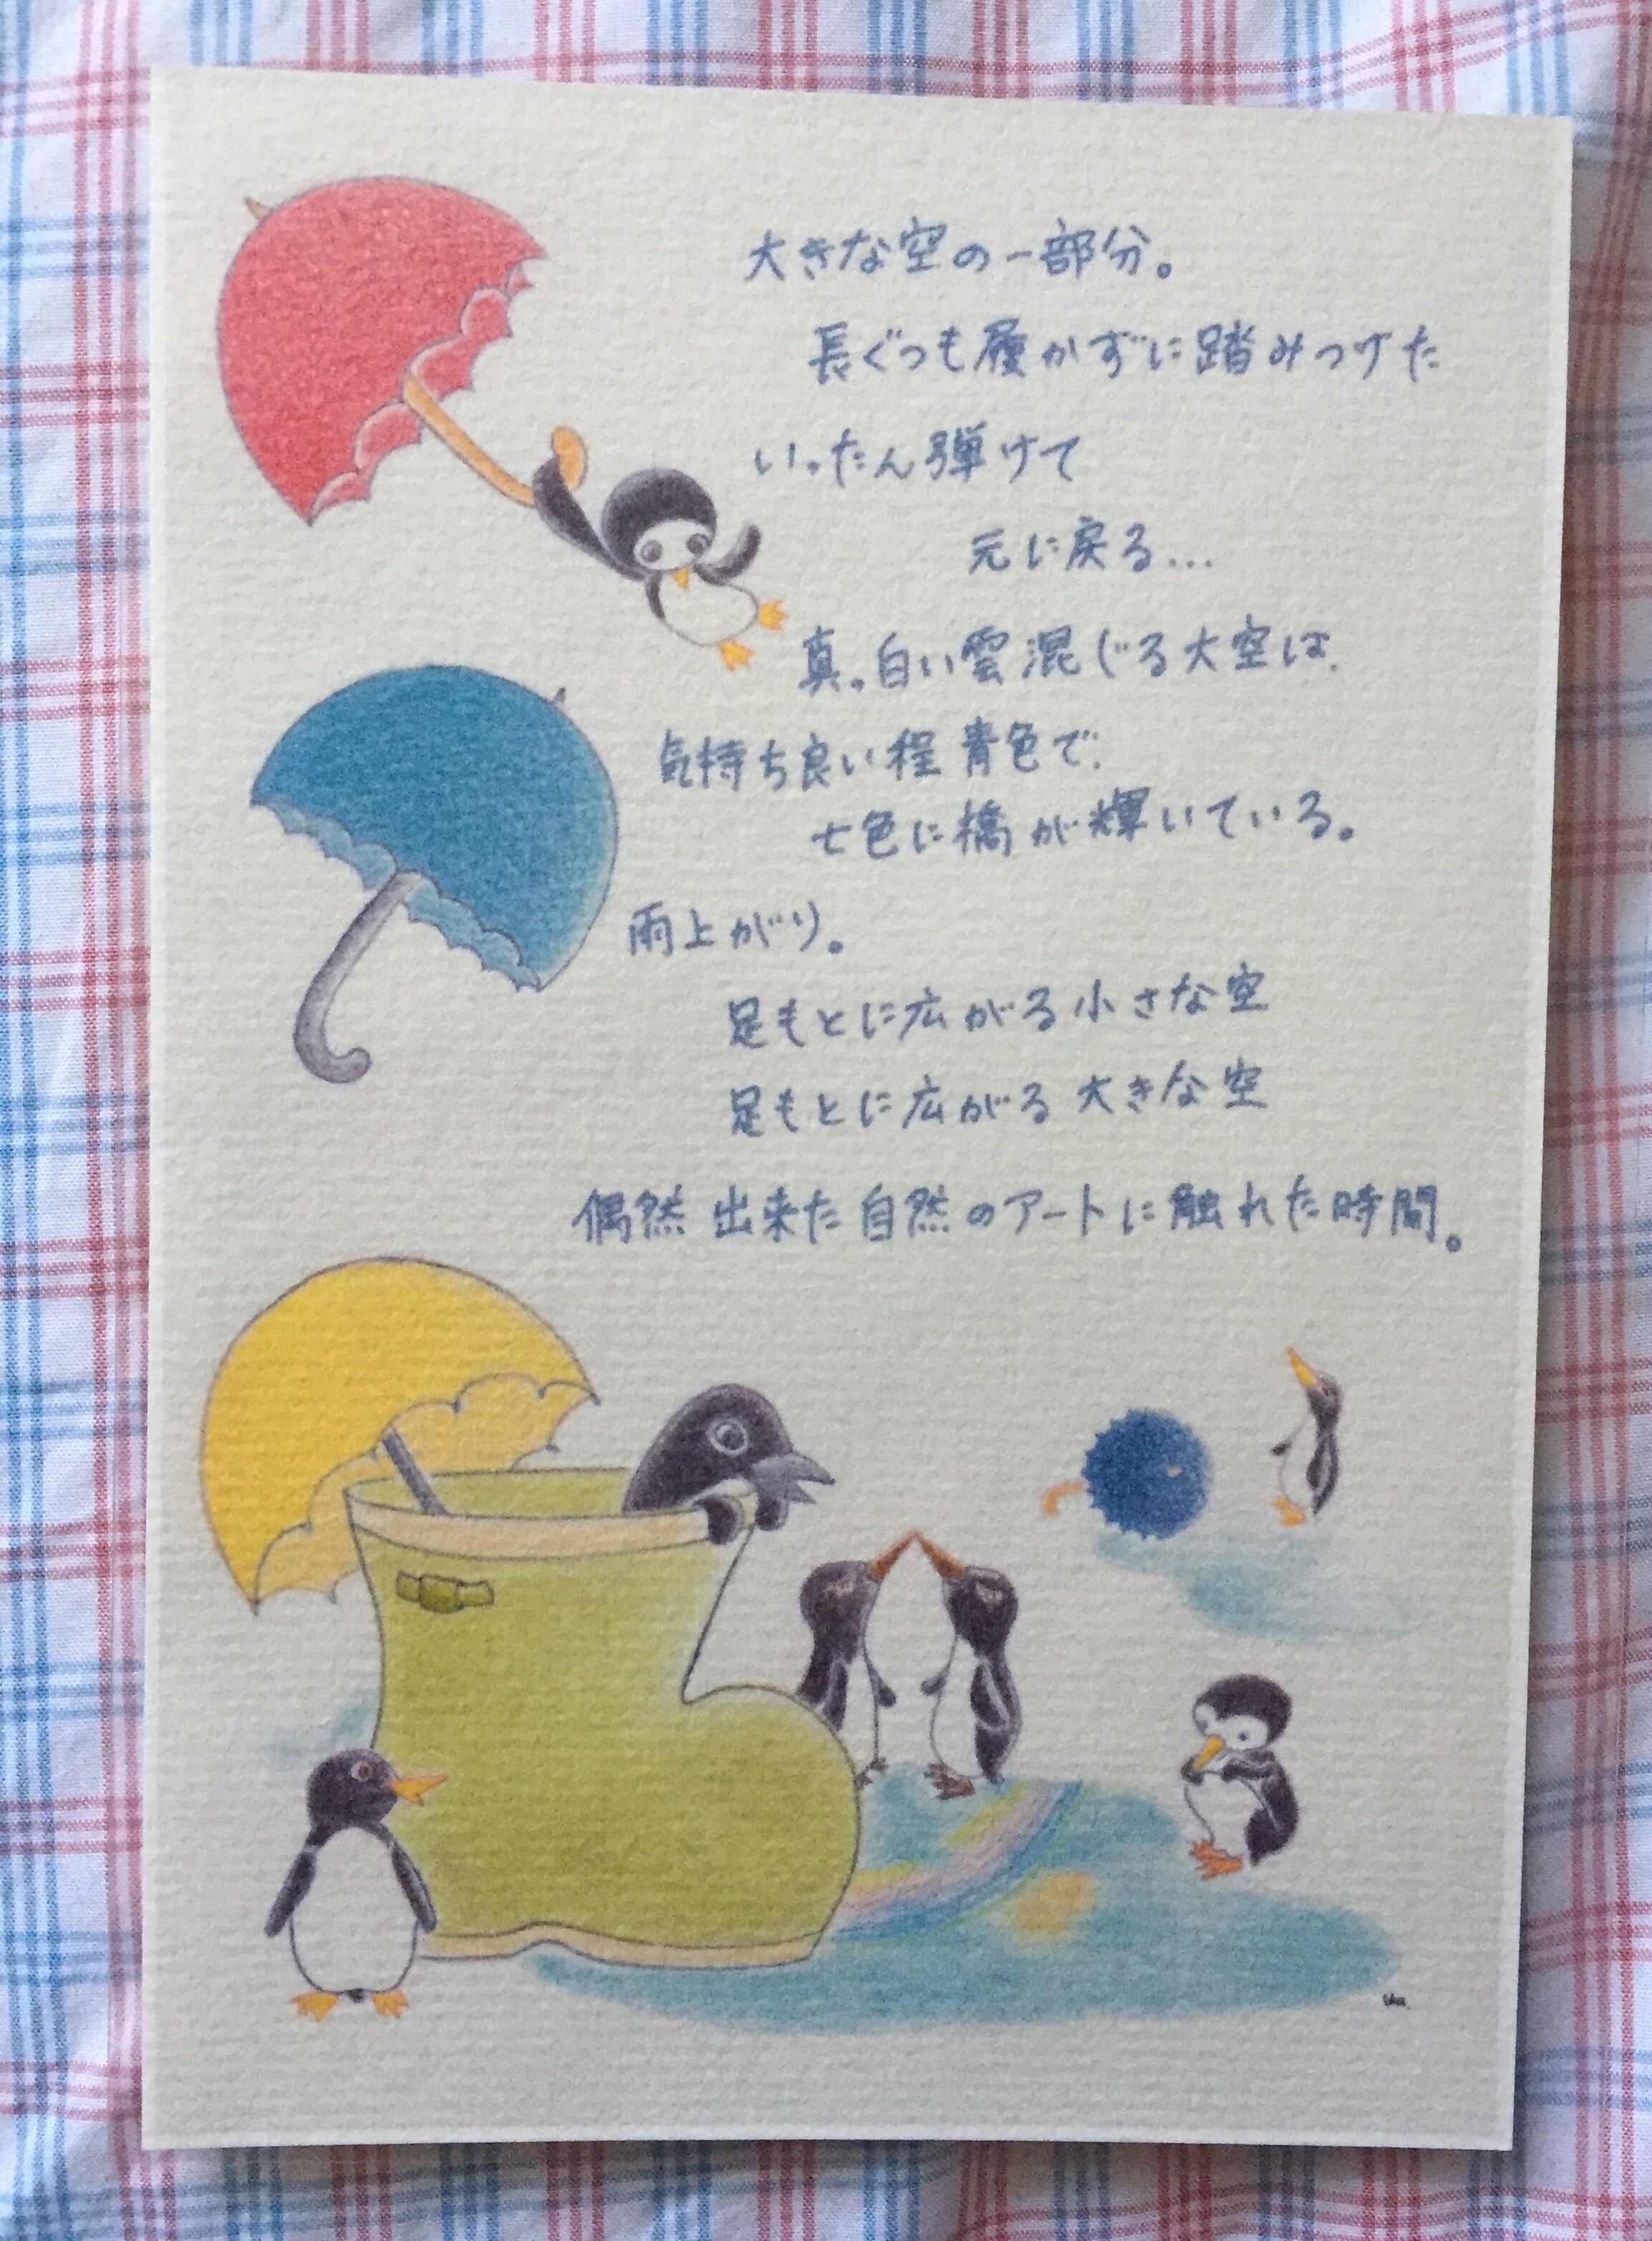 大きな空の一部分。
長ぐつも履かずに踏みつけた
いったん弾けて
元に戻る...
真っ白い雲混じる大空は、
気持ち良い程青色で、
七色に橋が輝いている。
雨上がり。
足もとに広がる小さな空
足もとに広がる大きな空
偶然 出来た自然のアートに触れた時間。